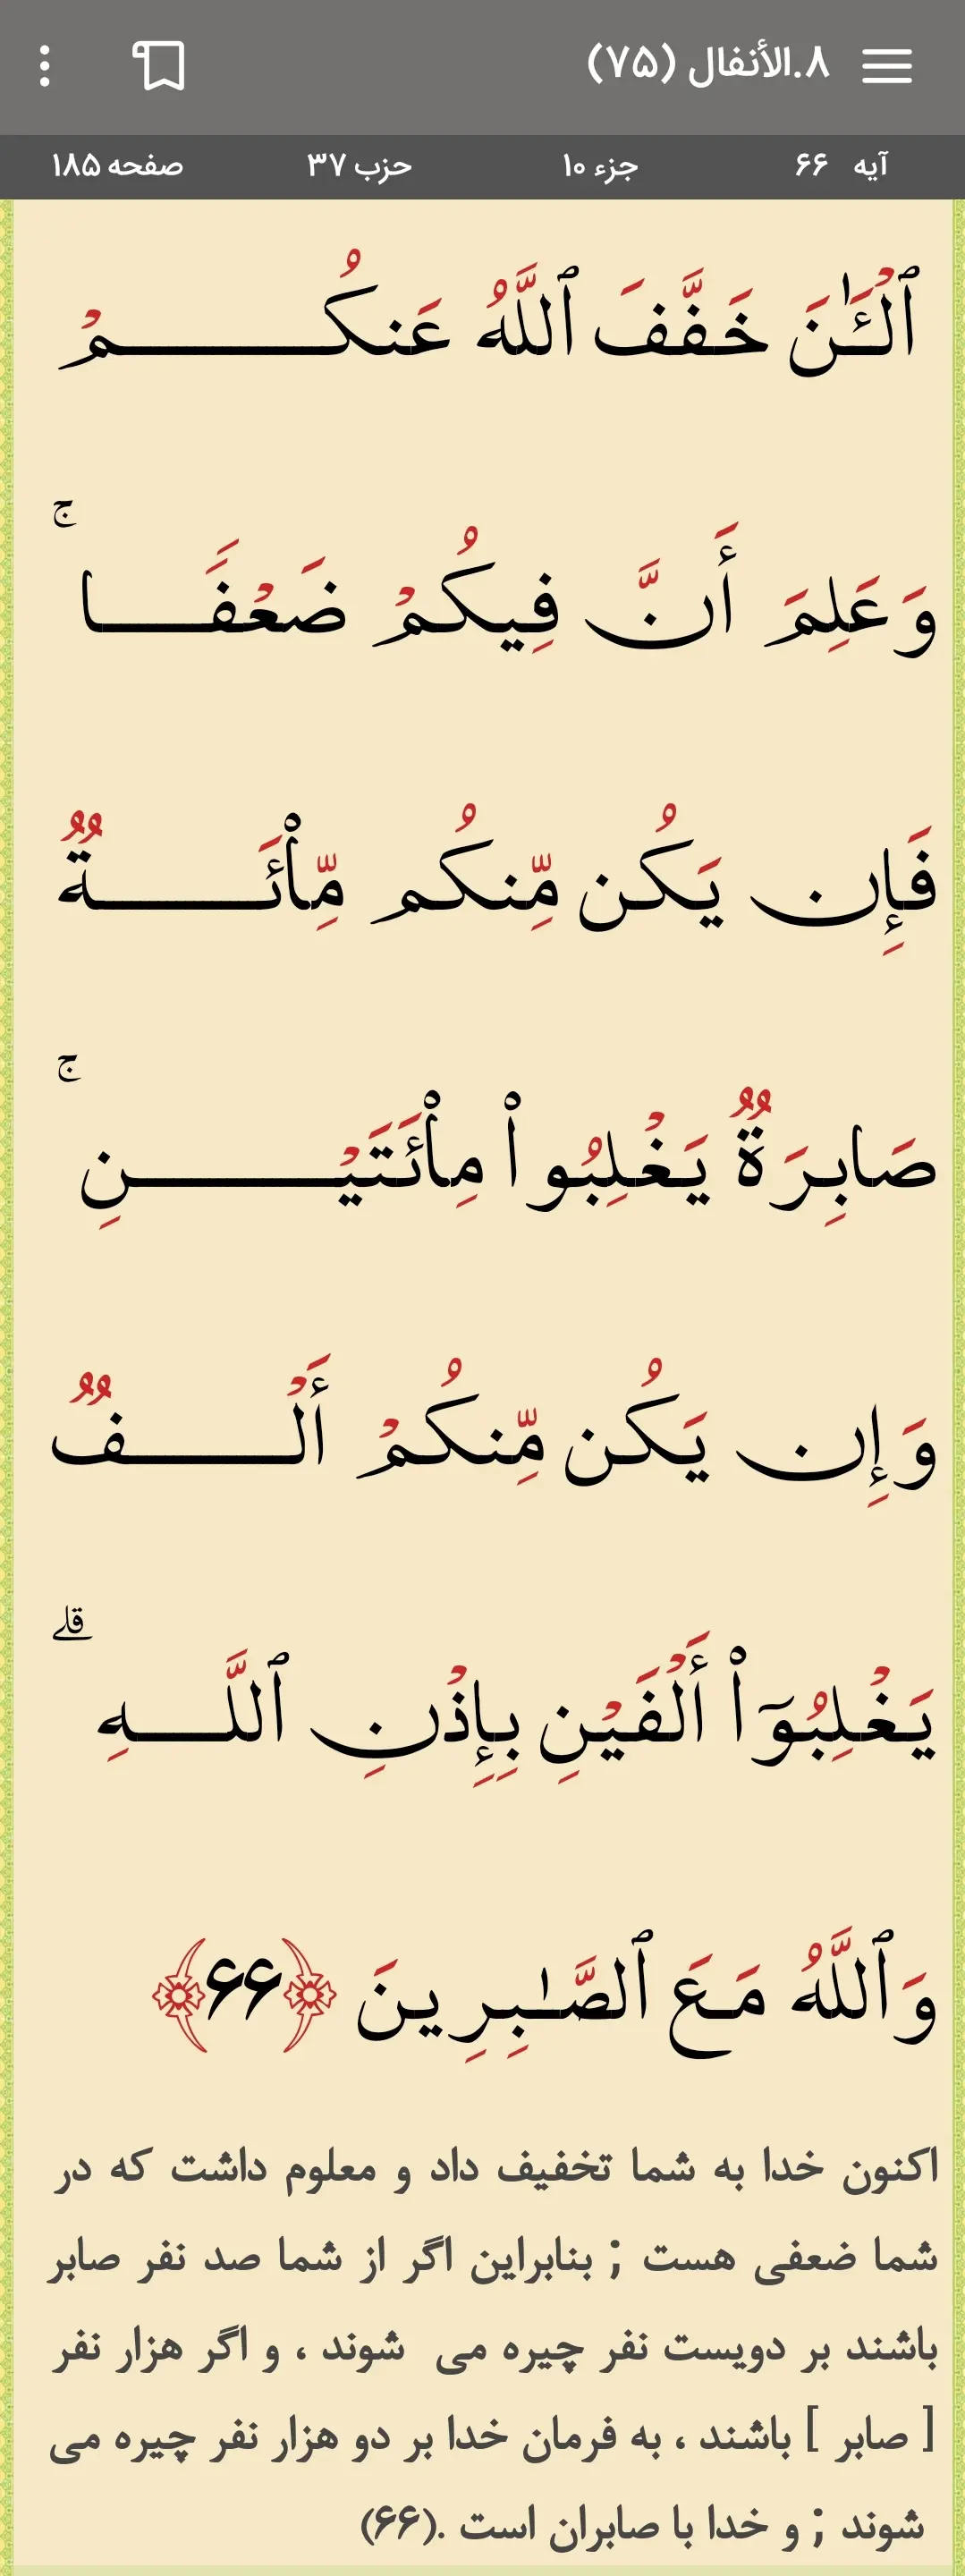 ۸.الأنفال (۷۵)
آیه ۶۶ جزء ۱۰ حزب ۳۷ صفحه ۱۸۵
ٱلۡـَٔـٰنَ خَفَّفَ ٱللَّهُ عَنكُمۡ
وَعَلِمَ أَنَّ فِيكُمۡ ضَعۡفٗاۚ
فَإِن يَكُن مِّنكُم مِّاْئَةٞ
صَابِرَةٞ يَغۡلِبُواْ مِاْئَتَيۡنِۚ
وَإِن يَكُن مِّنكُمۡ أَلۡفٞ
يَغۡلِبُوٓاْ أَلۡفَيۡنِ بِإِذۡنِ ٱللَّهِۗ
وَٱللَّهُ مَعَ ٱلصَّـٰبِرِينَ ﴿۶۶﴾
اکنون خدا به شما تخفیف داد و معلوم داشت که در
شما ضعفی هست ; بنابراین اگر از شما صد نفر صابر
باشند بر دویست نفر چیره می شوند ، و اگر هزار نفر
[ صابر ] باشند ، به فرمان خدا بر دو هزار نفر چیره می
شوند ; و خدا با صابران است .(۶۶)